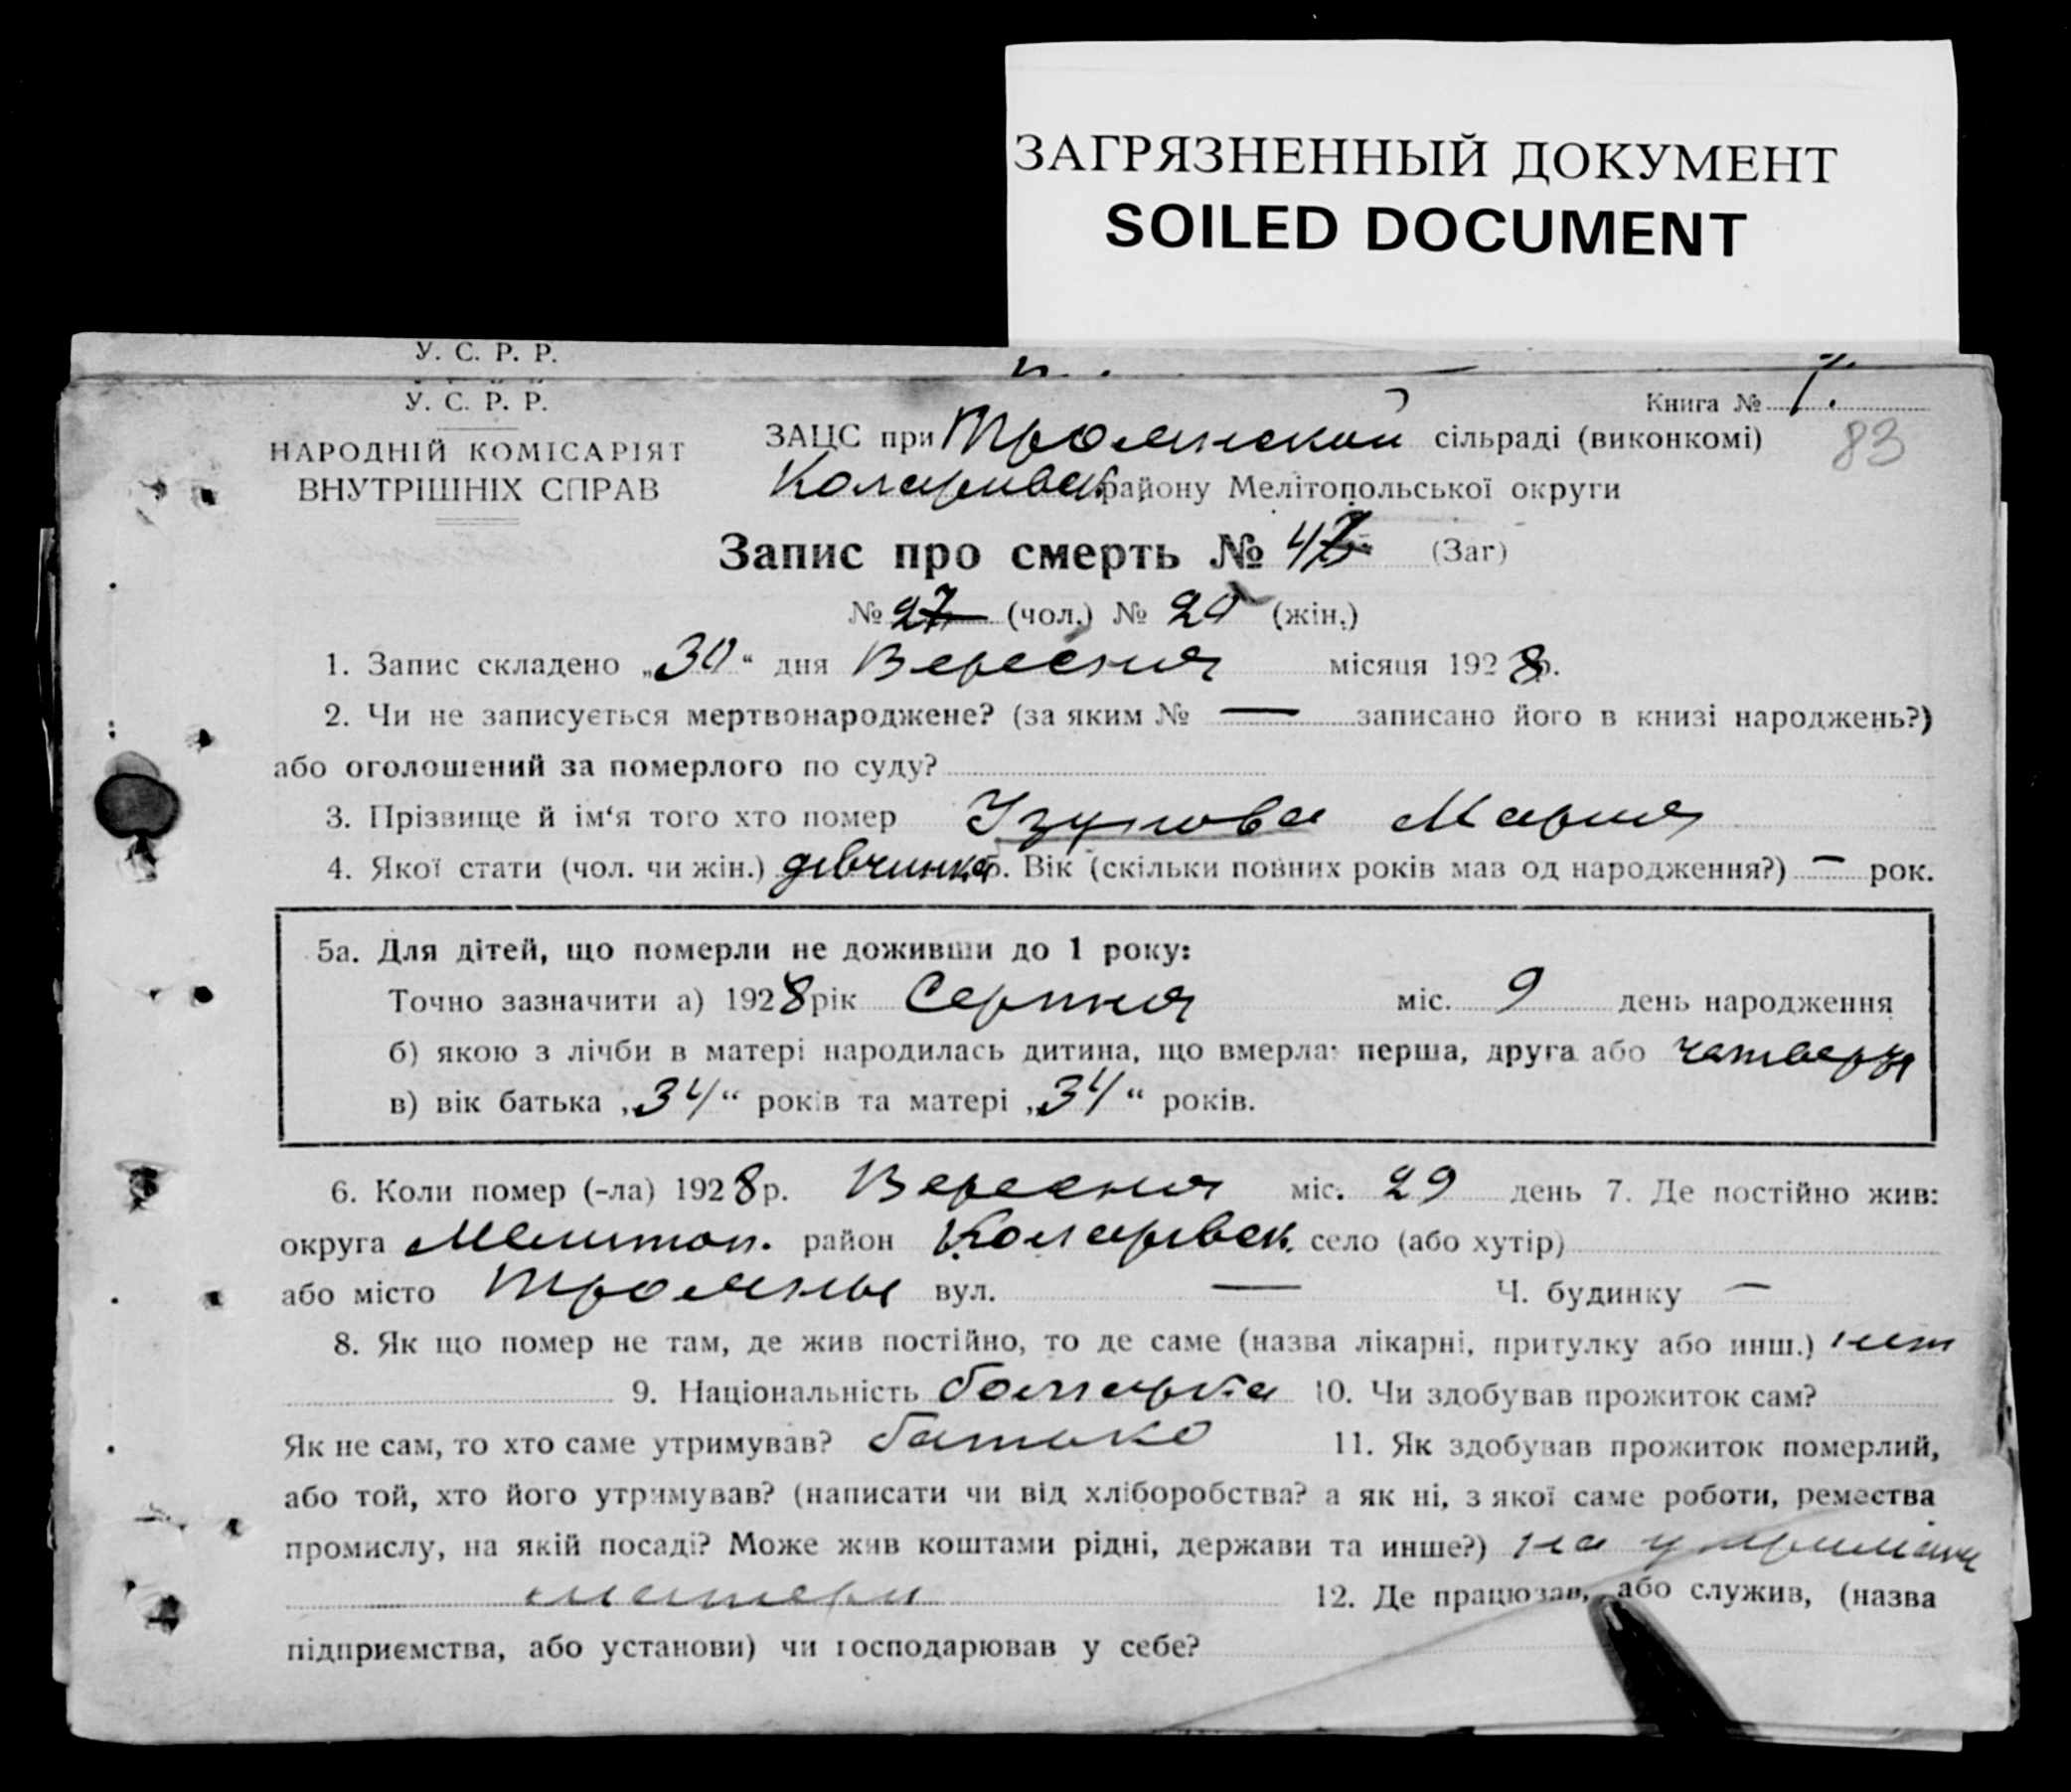 ЗАГРЯЗНЕННЫЙ ДОКУМЕНТ
SOILED DOCUMENT
У. С. Р. Р.
У. С. Р. Р.
НАРОДНІЙ КОМІСАРІЯТ
ВНУТРІШНІХ СПРАВ
Книга №
83
ЗАЦС при Троянской сільраді (виконкомі)
Коларивск району Мелітопольської округи
Запис про смерть № 47 (Заг)
№ 27 (чол.) № 20 (жін.)
1. Запис складено „30“ дня Вересня місяця 1928 р.
2. Чи не записується мертвонароджене? (за яким № — записано його в книзі народжень?)
або оголошений за померлого по суду?
3. Прізвище й ім‘я того хто помер Узунова Мария
4. Якої стати (чол. чи жін.) дівчинка 5. Вік (скільки повних років мав од народження?) — рок.
5а. Для дітей, що померли не доживши до 1 року:
Точно зазначити а) 1928 рік Серпня міс. 9 день народження
б) якою з лічби в матері народилась дитина, що вмерла: перша, друга або четверта
в) вік батька „34“ років та матері „34“ років.
6. Коли помер (-ла) 1928 р. Вересня міс. 29 день 7. Де постійно жив:
округа Мелитоп. район Коларивск. село (або хутір)
або місто Трояны вул. — Ч. будинку —
8. Як що помер не там, де жив постійно, то де саме (назва лікарні, притулку або инш.) нет
9. Національність болгарка 10. Чи здобував прожиток сам?
Як не сам, то хто саме утримував? батько 11. Як здобував прожиток померлий,
або той, хто його утримував? (написати чи від хліборобства? а як ні, з якої саме роботи, ремества
промислу, на якій посаді? Може жив коштами рідні, держави та инше?) на
матери 12. Де працював, або служив, (назва
підприємства, або установи) чи господарював у себе?